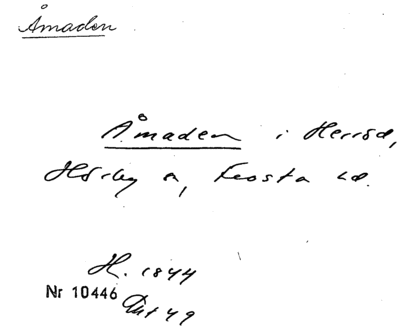 Åmaden
Åmaden i
Hörby s, Frosta hd.
H. 1844
Nr 10446
49